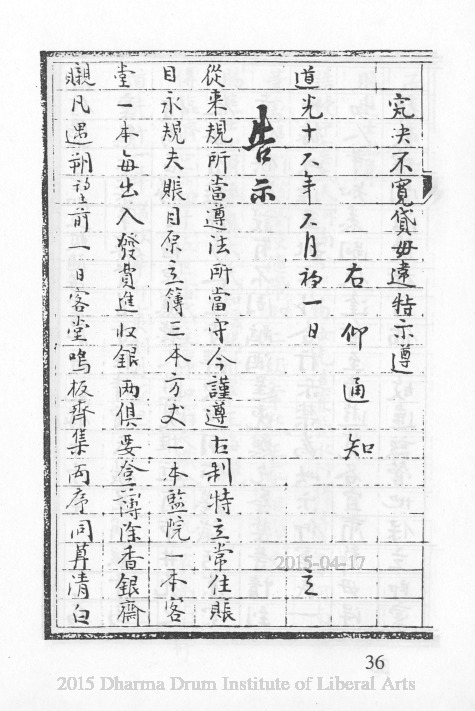 究決不寬貸毋違特示遵
右仰通知
道光十六年六月初一日
立
告示
從來規所當遵法所當守今謹遵古制特立常住賬
目永規夫賬目原立簿三本方丈一本監院一本客
堂一本每出入發費進收銀兩俱要登簿除香銀齋
嚫凡遇朔望前一日客堂鳴板齊集兩序同算清白
2015-04-17
36
2015 Dharma Drum Institute of Liberal Arts